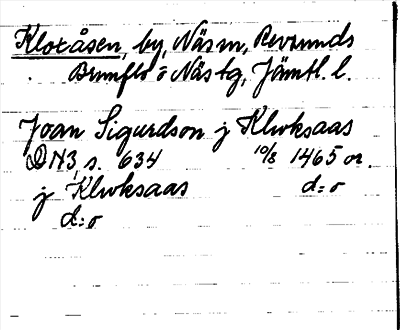 Klotåsen, by, Näs sn, Revsunds
Brunflo o Näs tg, Jämtl. l.
Joan Sigurdson j Klwksaas
DN3, s. 634 10/8 1465 or.
j Klwksaas d:o
d:o